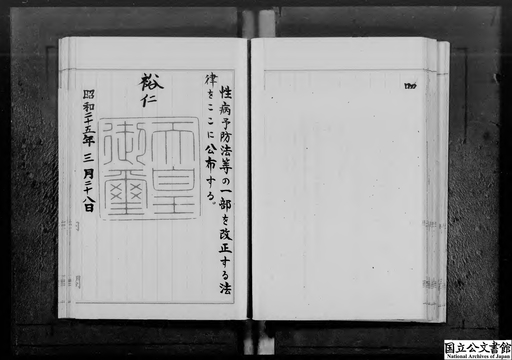 性病予防法等の一部を改正する法
律をここに公布する。
裕仁
天皇
御璽
昭和二十五年三月二十八日
国立公文書館
National Archives of Japan